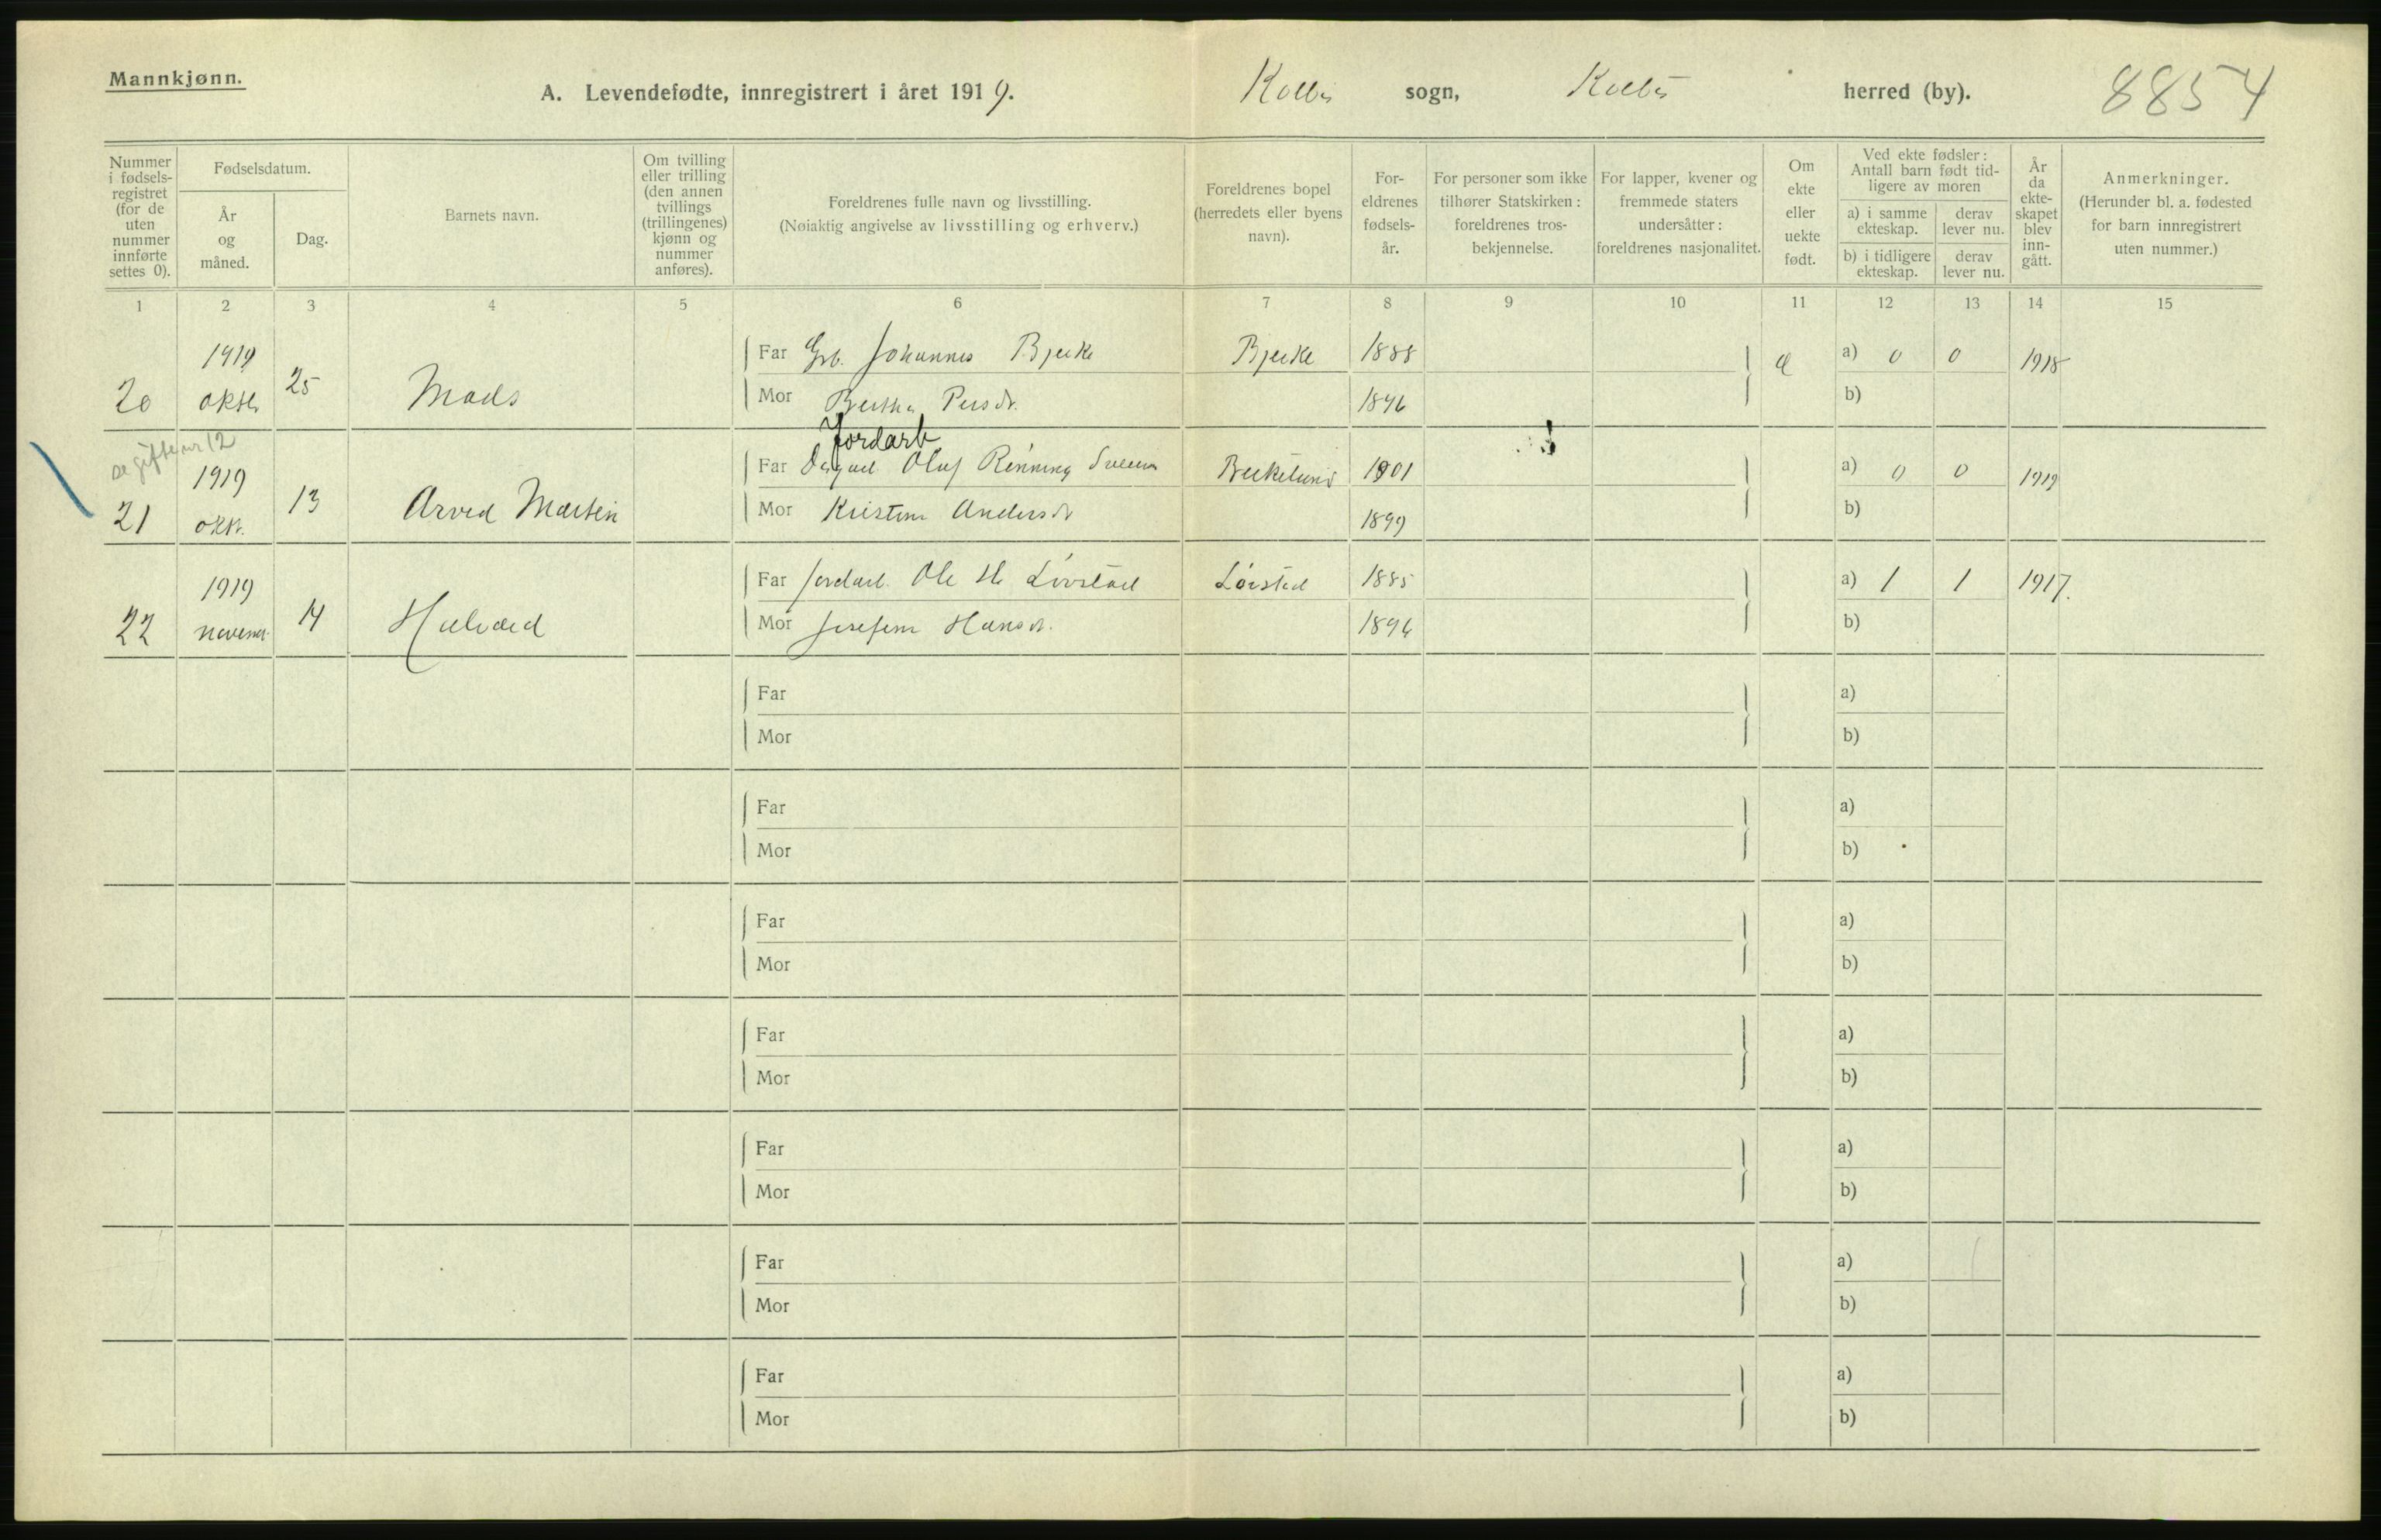 Mannkjønn.
A. Levendefødte, innregistrert i året 1919. Kolbu sogn, Kolbu herred (by). 8854
Nummer i fødsels-registret (for de uten nummer innførte settes 0).
Fødselsdatum.
År og måned.
Dag.
Barnets navn.
Om tvilling eller trilling (den annen tvillings (trillingenes) kjønn og nummer anføres).
Foreldrenes fulle navn og livsstilling.
(Nøiaktig angivelse av livsstilling og erhverv.)
Foreldrenes bopel (herredets eller byens navn).
For-eldrenes fødsels-år.
For personer som ikke tilhører Statskirken: foreldrenes tros-bekjennelse.
For lapper, kvener og fremmede staters undersåtter: foreldrenes nasjonalitet.
Om ekte eller uekte født.
Ved ekte fødsler: Antall barn født tid-ligere av moren
a) i samme ekteskap.
derav lever nu.
b) i tidligere ekteskap.
derav lever nu.
År da ekte-skapet blev inn-gått.
Anmerkninger.
(Herunder bl. a. fødested for barn innregistrert uten nummer.)
1 2 3 4 5 6 7 8 9 10 11 12 13 14 15
20 1919 oktb. 25 Mads
Far Grb. Johannes Bjerke Bjerke 1888 a) 0 0 1918
Mor Bertha Persdt. 1896 b)
se gifte nr 12
Jordarb
21 1919 okt. 13 Arved Martin
Far Olaf Rønning Birkelund 1901 a) 0 0 1919
Mor Kristine Andersdt 1899 b)
22 1919 novembr. 14 Halvard
Far Jordarb. Ole H. Lørstad Lørstad 1885 a) 1 1 1917.
Mor Josefine Hansdt. 1896 b)
Far a)
Mor b)
Far a)
Mor b)
Far a)
Mor b)
Far a)
Mor b)
Far a)
Mor b)
Far a)
Mor b)
Far a)
Mor b)